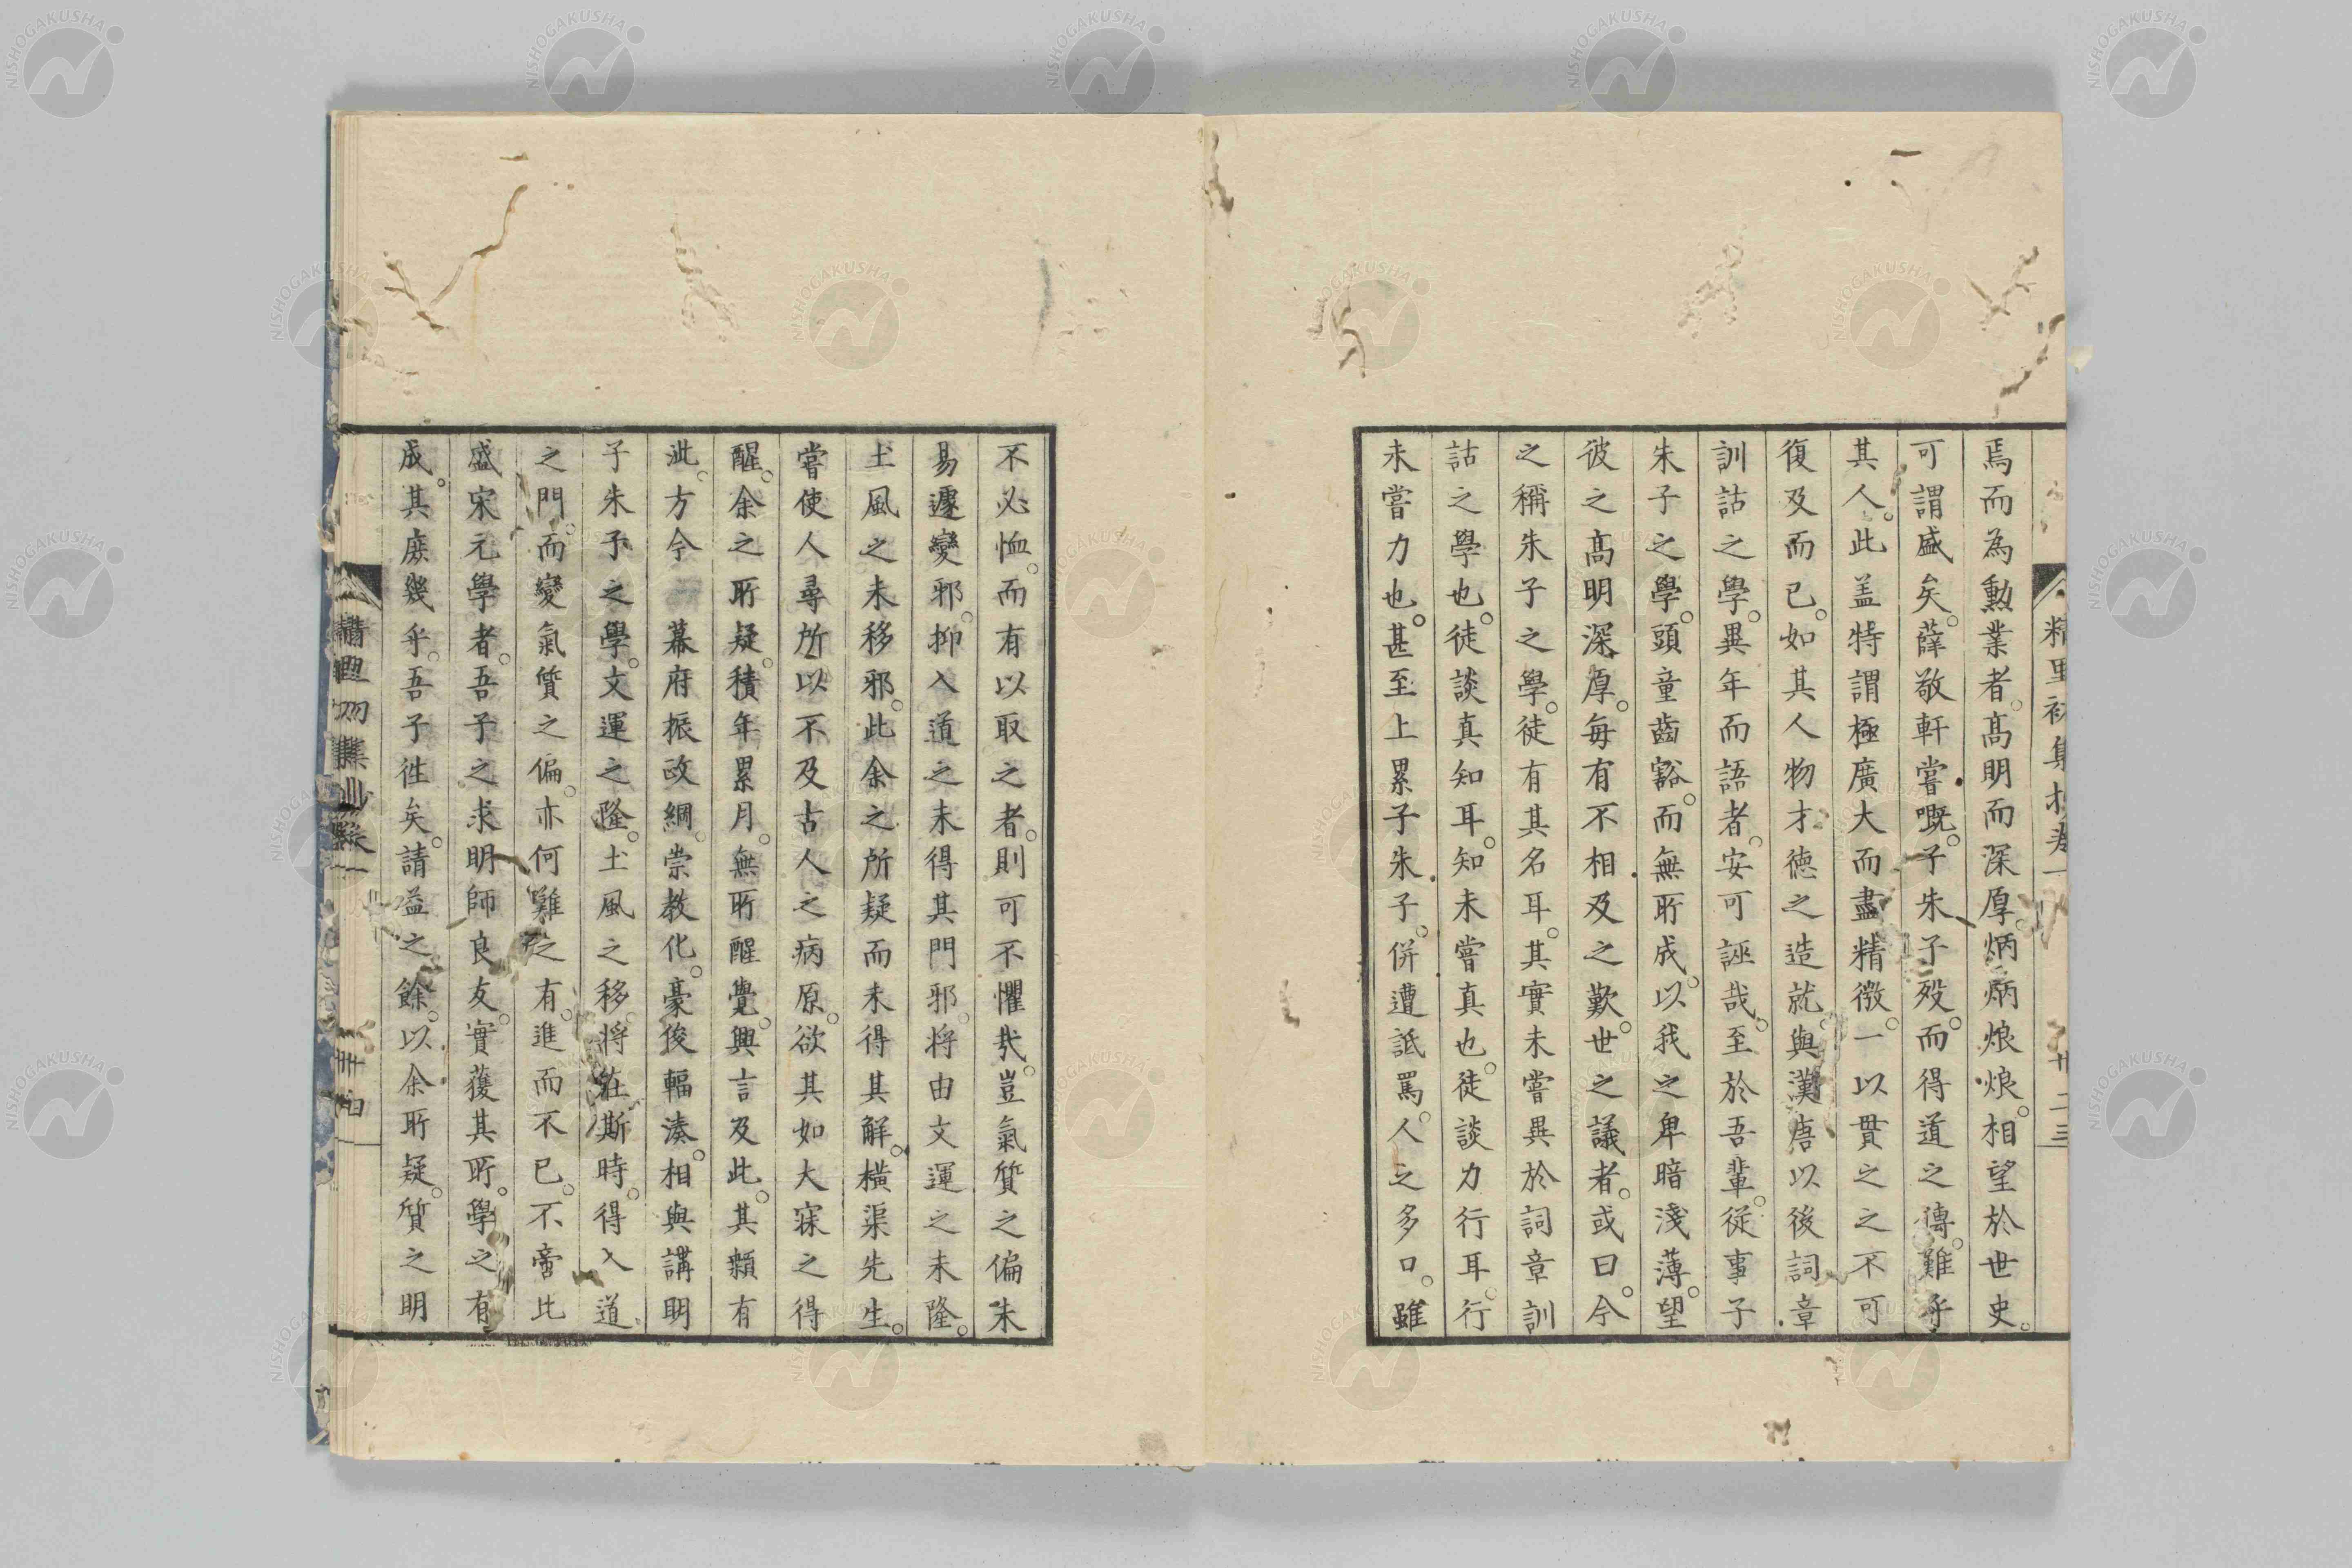 精里初集抄卷一 廿三
焉而為勲業者。高明而深厚。炳炳烺烺。相望於世史。
可謂盛矣。薛敬軒嘗嘅。子朱子歿。而得道之傳。難乎
其人。此盖特謂極廣大而盡精微。一以貫之之不可
復及而已。如其人物才德之造就。與漢唐以後詞章
訓詁之學。異年而語者。安可誣哉。至於吾輩。從事子
朱子之學。頭童齒豁。而無所成。以我之卑暗淺薄。望
彼之高明深厚。每有不相及之歎。世之議者。或曰。今
之稱朱子之學。徒有其名耳。其實未嘗異於詞章訓
詁之學也。徒談真知耳。知未嘗真也。徒談力行耳。行
未嘗力也。甚至上累子朱子。併遭詆罵。人之多口。雖
不必恤。而有以取之者。則可不懼哉。豈氣質之偏未
易遽變邪。抑入道之未得其門邪。將由文運之未隆。
土風之未移邪。此余之所疑而未得其解。橫渠先生。
嘗使人尋所以不及古人之病原。欲其如大寐之得
醒。余之所疑。積年累月。無所醒覺。興言及此。其顙有
泚。方今 幕府振政綱。崇教化。豪俊輻湊。相與講明
子朱子之學。文運之隆。土風之移。將在斯時。得入道
之門。而變氣質之偏。亦何難之有。進而不已。不啻比
盛宋元學者。吾子之求明師良友。實獲其所。學之有
成。其庶幾乎。吾子徃矣。請嗌之餘。以余所疑。質之明
精里初集抄卷一